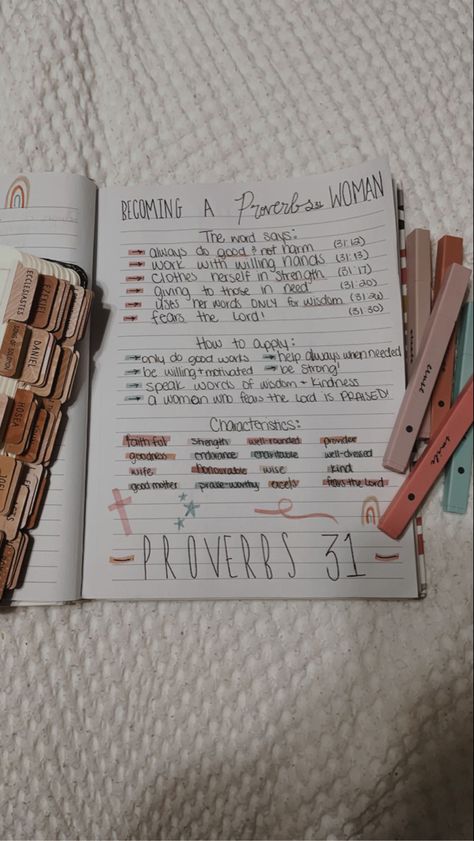 BECOMING A Proverbs31 WOMAN
The word says:
→ always do good & not harm (31:12)
→ work with willing hands (31:13)
→ clothes herself in strength (31:17)
→ giving to those in need (31:20)
→ uses her words ONLY for wisdom (31:26)
→ fears the Lord! (31:30)
How to apply:
→ only do good works → help always when needed
→ be willing + motivated → be strong!
→ speak words of wisdom + kindness
→ a woman who fears the Lord is PRAISED!
Characteristics:
faithful strength well-rounded provider
goodness endurance charitable well-dressed
wife honourable wise kind
good mother praise-worthy excels fears the Lord
PROVERBS 31
ECCLESIASTES
EZEKIEL
SONG OF SOLOMON
DANIEL
HOSEA
JOEL
smile
smile